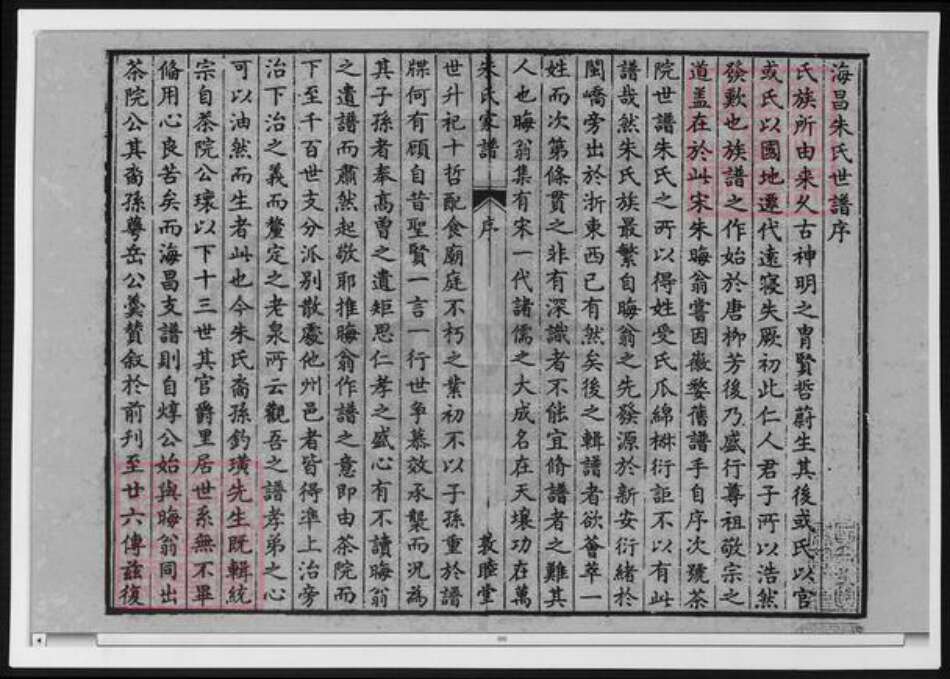 海昌朱氏世譜序
氏族所由来久古神明之冑賢哲蔚生其後或氏以官
或氏以國地遷代遠寖失厥初此仁人君子所以浩然
發歎也族譜之作始於唐柳芳後乃盛行尊祖敬宗之
道盖在於此宋朱晦翁嘗因徽婺舊譜手自序次號茶
院世譜朱氏之所以得姓受氏瓜綿椒衍詎不以有此
譜哉然朱氏族最繁自晦翁之先發源於新安衍緒於
閩嶠旁出於浙東西已有然矣後之輯譜者欲薈萃一
姓而次第條貫之非有深識者不能宜脩譜者之難其
人也晦翁集有宋一代諸儒之大成名在天壤功在萬
朱氏家譜 序 敦睦堂
世升祀十哲配食廟庭不朽之業初不以子孫重於譜
牒何有頋自昔聖賢一言一行世爭慕效承襲而况為
其子孫者奉髙曽之遺矩思仁孝之盛心有不讀晦翁
之遺譜而肅然起敬耶推晦翁作譜之意即由茶院而
下至千百世支分派别散處他州邑者皆得準上治旁
治下治之義而釐定之老泉所云觀吾之譜孝弟之心
可以油然而生者此也今朱氏裔孫釣璜先生既輯統
宗自茶院公瓌以下十三世其官爵里居世系無不畢
脩用心良苦矣而海昌支譜則自焞公始與晦翁同出
茶院公其裔孫蓴岳公羹賛叙於前刋至廿六傳兹復